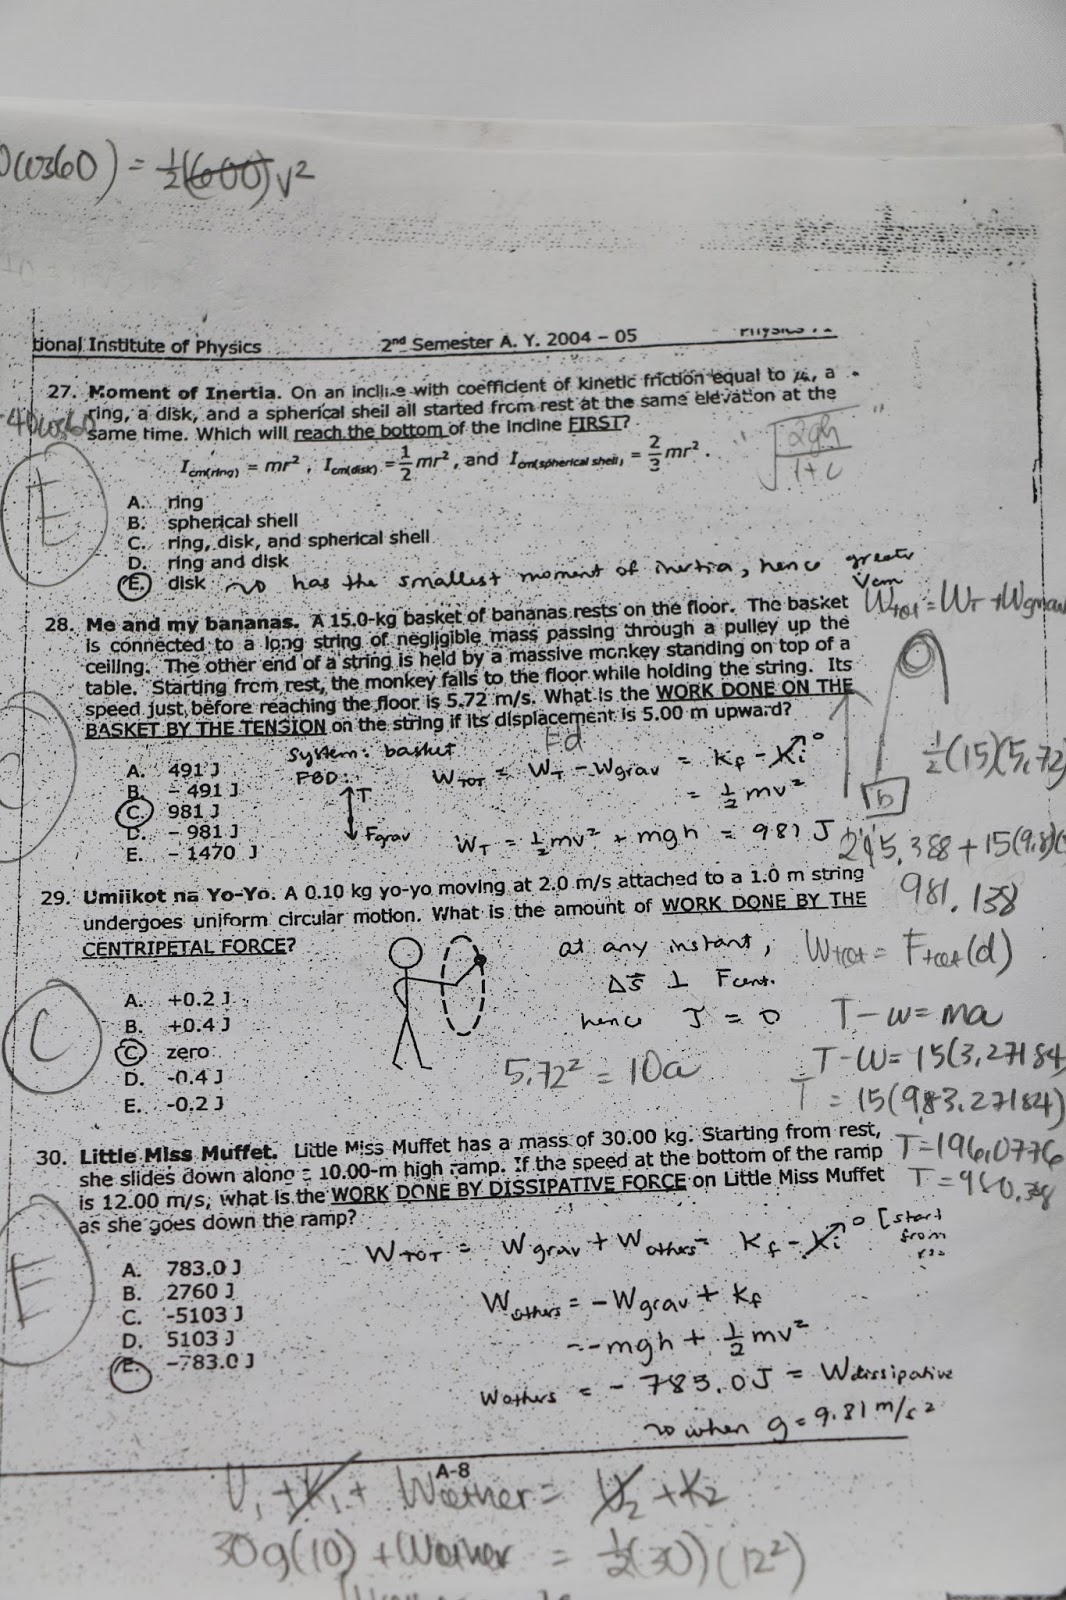 cos60) = ½(600)v²
tional Institute of Physics 2nd Semester A. Y. 2004 – 05
27. Moment of Inertia. On an incline with coefficient of kinetic friction equal to μ, a
ring, a disk, and a spherical shell all started from rest at the same elevation at the
same time. Which will reach the bottom of the incline FIRST?
I cm(ring) = mr², I cm(disk) = ½mr², and I cm(spherical shell) = 2/3 mr².
√(2gh/1+c)
E
A. ring
B. spherical shell
C. ring, disk, and spherical shell
D. ring and disk
E. disk ~> has the smallest moment of inertia, hence greater Vcm
28. Me and my bananas. A 15.0-kg basket of bananas rests on the floor. The basket
is connected to a long string of negligible mass passing through a pulley up the
ceiling. The other end of a string is held by a massive monkey standing on top of a
table. Starting from rest, the monkey falls to the floor while holding the string. Its
speed just before reaching the floor is 5.72 m/s. What is the WORK DONE ON THE
BASKET BY THE TENSION on the string if its displacement is 5.00 m upward?
Wtot = WT + Wgrav
Fd
A. 491 J
B. - 491 J
C. 981 J
D. - 981 J
E. - 1470 J
system: basket
FBD:
T
Fgrav
WTOT = WT - Wgrav = Kf - Ki 0
= ½ mv²
WT = ½mv² + mgh = 981 J
b
½(15)(5.72
245.388 + 15(9.8)(
981.138
29. Umiikot na Yo-Yo. A 0.10 kg yo-yo moving at 2.0 m/s attached to a 1.0 m string
undergoes uniform circular motion. What is the amount of WORK DONE BY THE
CENTRIPETAL FORCE?
C
A. +0.2 J
B. +0.4 J
C. zero
D. -0.4 J
E. -0.2 J
at any instant,
Δs ⊥ Fcent.
hence J = 0
5.72² = 10a
Wtot = Ftot(d)
T - w = ma
T - w = 15(3.27184
T = 15(983.27184)
T = 196.0776
T = 980.38
30. Little Miss Muffet. Little Miss Muffet has a mass of 30.00 kg. Starting from rest,
she slides down along a 10.00-m high ramp. If the speed at the bottom of the ramp
is 12.00 m/s, what is the WORK DONE BY DISSIPATIVE FORCE on Little Miss Muffet
as she goes down the ramp?
E
A. 783.0 J
B. 2760 J
C. -5103 J
D. 5103 J
E. -783.0 J
WTOT = Wgrav + Wothers = Kf - Ki 0 [start from
Wothers = -Wgrav + Kf
= -mgh + ½mv²
Wothers = - 783.0J = Wdissipative
~> when g = 9.81 m/s²
A-8
U1 + K1 + Wother = U2 + K2
30g(10) + Wother = ½(30)(12²)